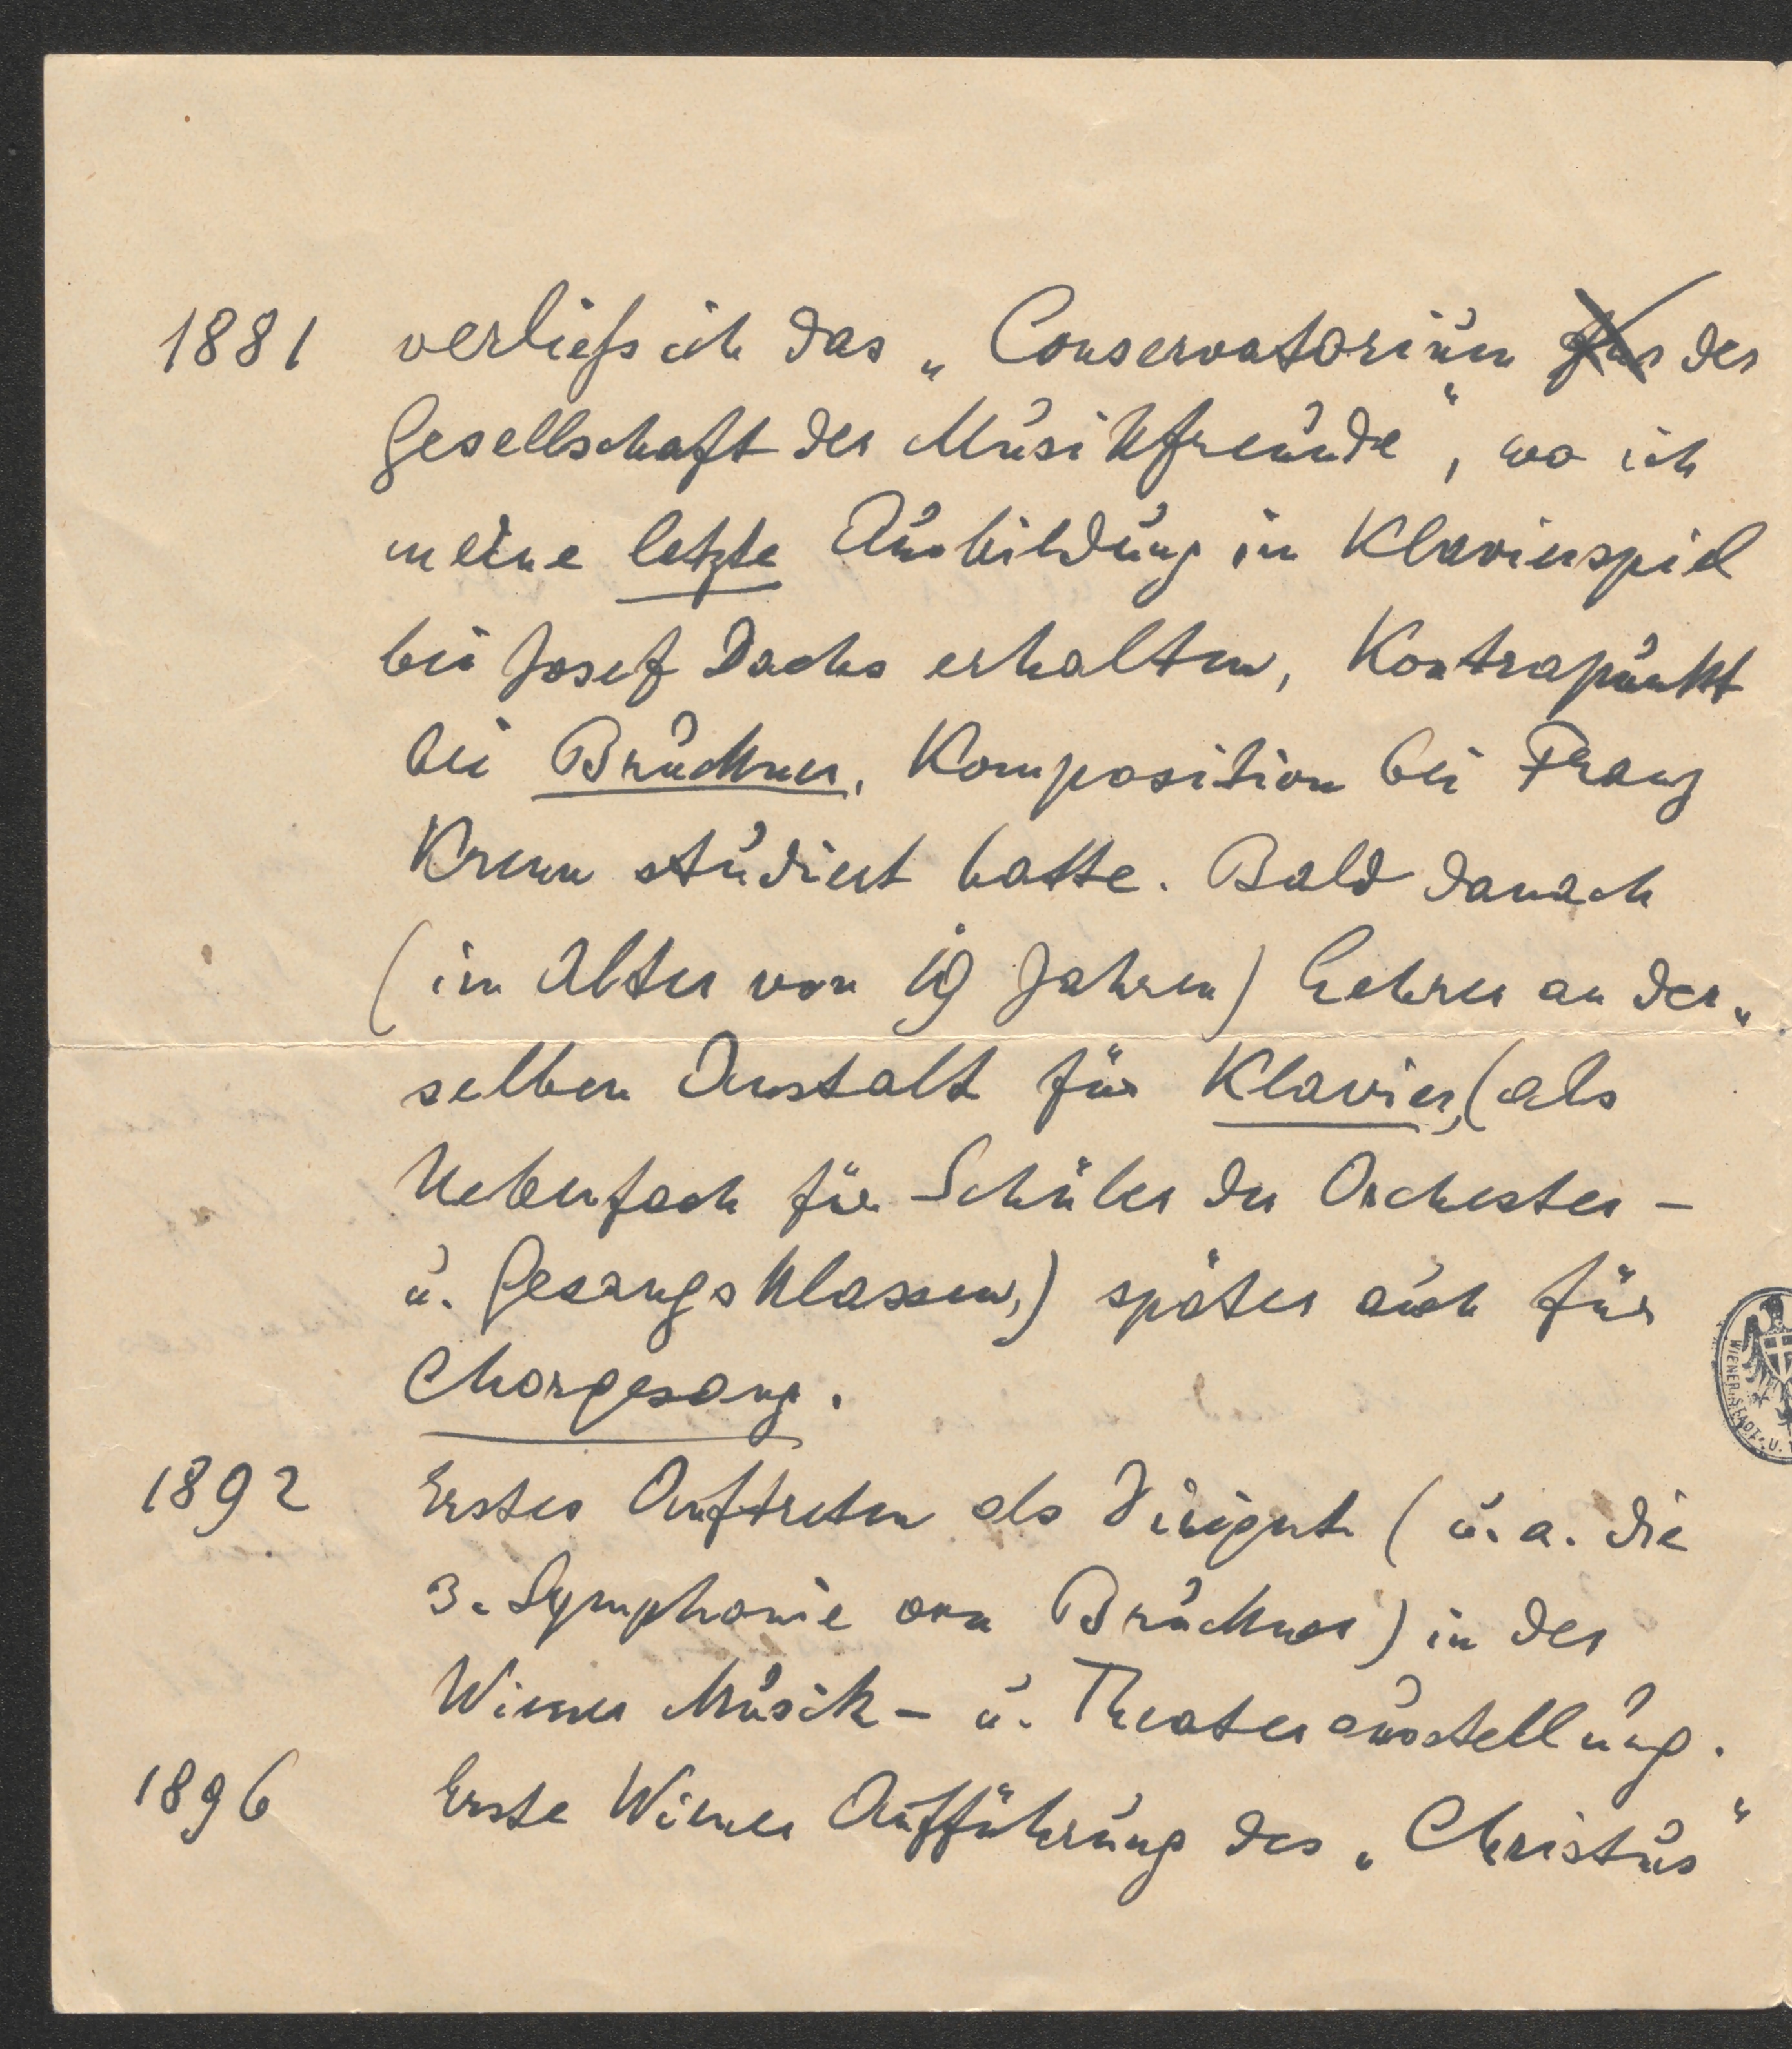 1881 verließ ich das „Conservatorium der
Gesellschaft der Musikfreunde“, wo ich
meine letzte Ausbildung im Klavierspiel
bei Josef Dachs erhalten, Kontrapunkt
bei Bruckner, Komposition bei Franz
Krenn studiert hatte. Bald danach
(im Alter von 19 Jahren) Lehrer an der„
selben Anstalt für Klavier, (als
Nebenfach für Schüler der Orchester-
u. Gesangsklassen,) später auch für
Chorgesang.
1892 Erstes Auftreten als Dirigent (u. a. die
3. Symphonie von Bruckner) in der
Wiener Musik- u. Theaterausstellung.
1896 Erste Wiener Aufführung des „Christus“
WIENER STADT- U.